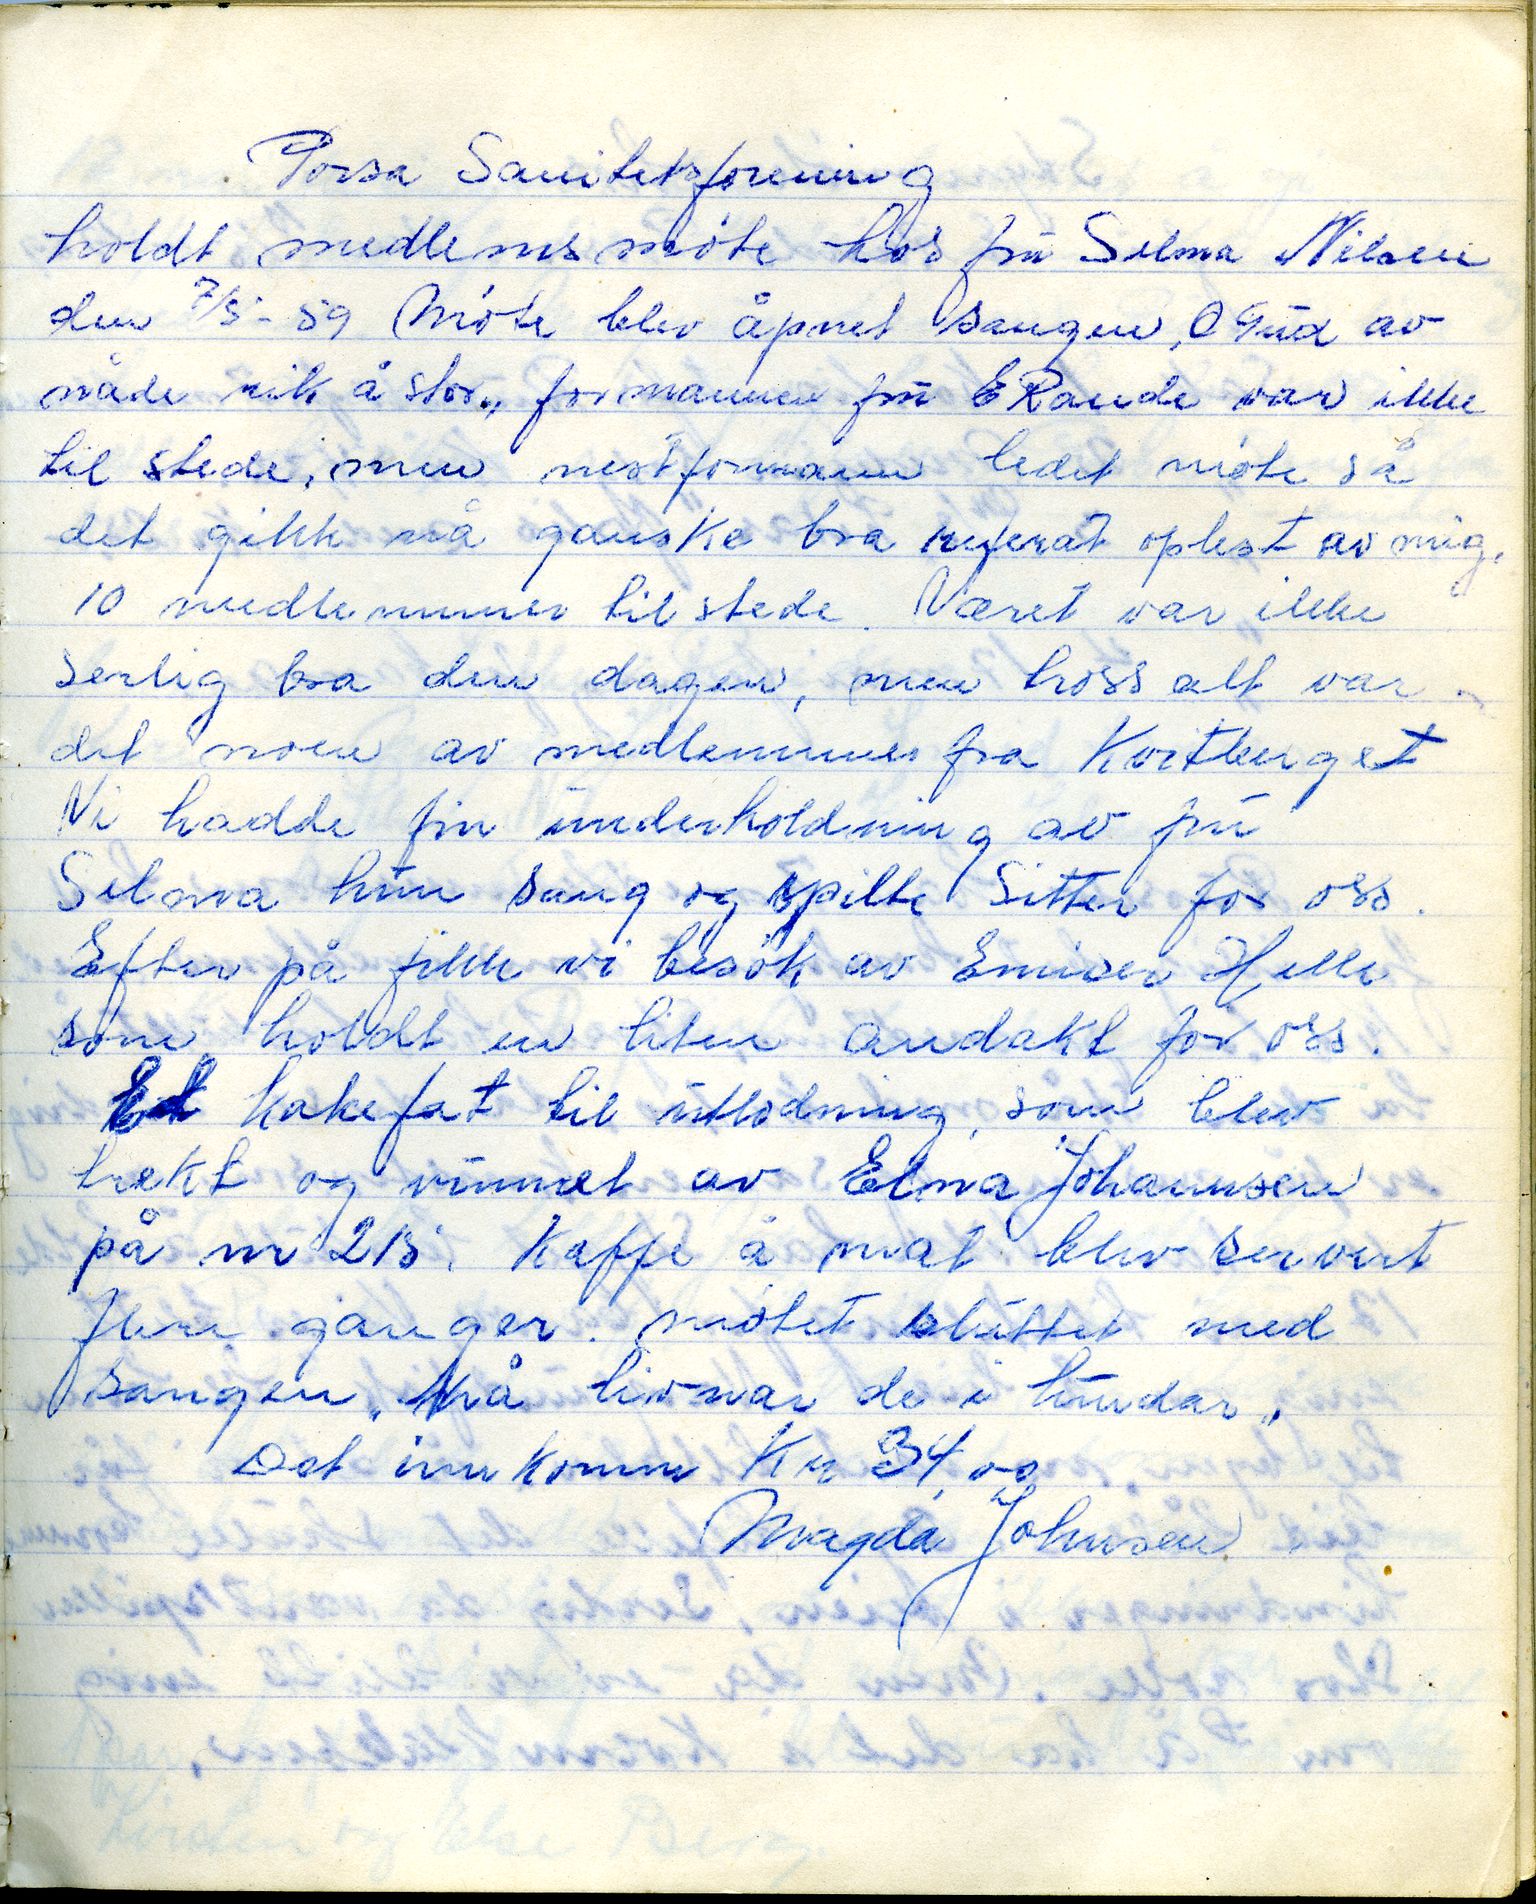 Porsa Sanitetsforening
holdt medlemsmöte hos frü Selma Nilsen
den 7/5-59 Möte blev åpnet sangen „O Güd av
nåde rik å stor„ formannen frü E Rande var ikke
til stede, men nestformann ledet möte så
det gikk nå ganske bra referat oplest av mig.
10 medlemmer til stede. Været var ikke
serlig bra den dagen, men tross alt var
det noen av medlemmer fra Kvitberget
Vi hadde fin ünderholdning av frü
Selma hün sang og spilte Sitter for oss.
Efter på fikk vi besök av Helle
som holdt en liten andakt for oss.
Et kakefat til ütlodning, som blev
trekt og vünnet av Elma Johannsen
på nr 215. Kaffe å mat blev servert
flere ganger. mötet slüttet med
sangen „Nå livnar de i lündar„
Det innkomm Kr 34,00
Magda Johnsen